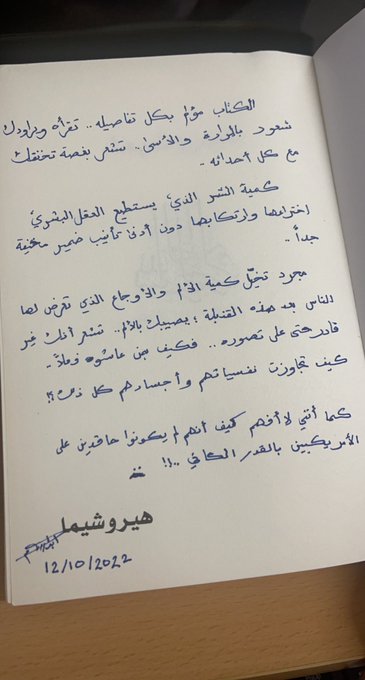 الكتاب مؤلم بكل تفاصيله.. تقرأه ويراودك
شعور بالمرارة والأسى.. تشعر بغصة تخنقك
مع كل أحداثه..
كمية الشر الذي يستطيع العقل البشري
اختراعها وارتكابها دون أدنى تأنيب ضمير مخيفة
جداً..
مجرد تخيّل كمية الألم والأوجاع الذي تعرض لها
الناس بعد هذه القنبلة؛ يصيبك بالألم.. تشعر أنك غير
قادر حتى على تصوره.. فكيف بمن عاشوه فعلاً..
كيف تجاوزت نفسياتهم وأجسادهم كل ذلك؟!
كما أنني لا أفهم كيف أنهم لم يكونوا حاقدين على
الأمريكيين بالقدر الكافي..!
هيروشيما
12/10/2022